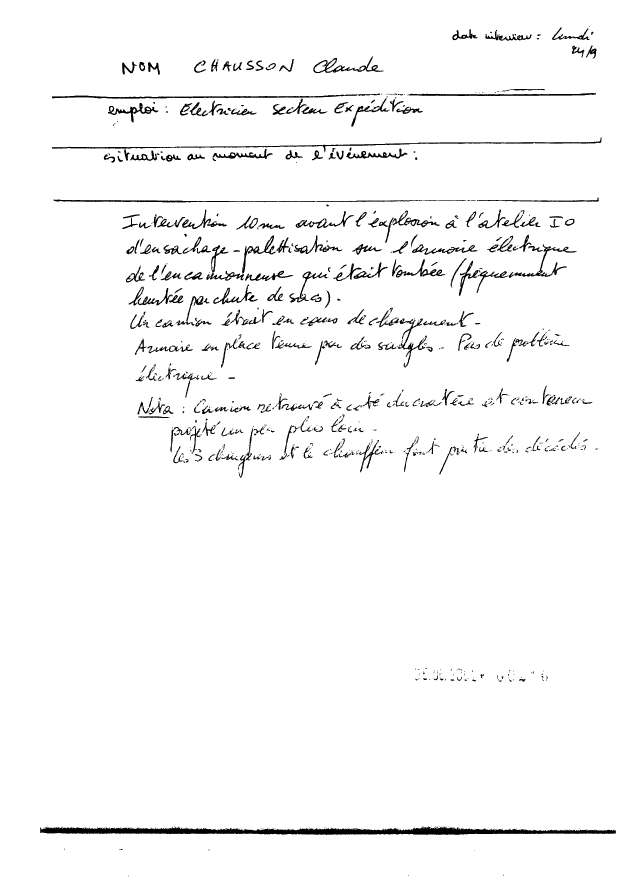 date interview : lundi
24/9
NOM CHAUSSON Claude
emploi : Electricien Secteur Expédition
situation au moment de l'événement :
Intervention 10mn avant l'explosion à l'atelier I0
d'ensachage-palettisation sur l'armoire électrique
de l'encamionneuse qui était tombée (fréquemment
heurtée par chute de sacs).
Un camion était en cours de chargement.
Armoire en place tenue par des sangles. Pas de problème
électrique.
Nota : Camion retrouvé à coté du cratère et conteneur
projeté un peu plus loin.
Les 3 chargeurs et le chauffeur font partie des décédés.